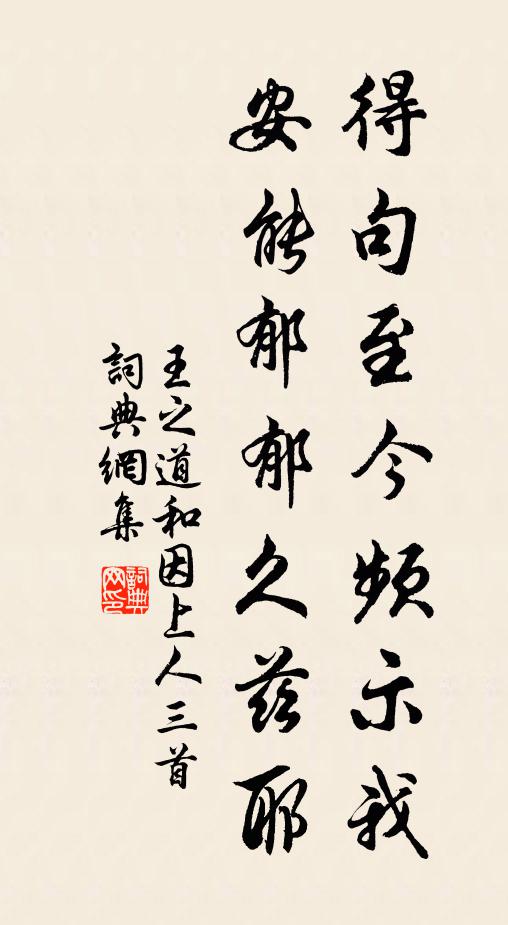 得句至今頻示我
安能郁郁久茲耶
王之道和因上人三首
詞典網集
詞典
网印